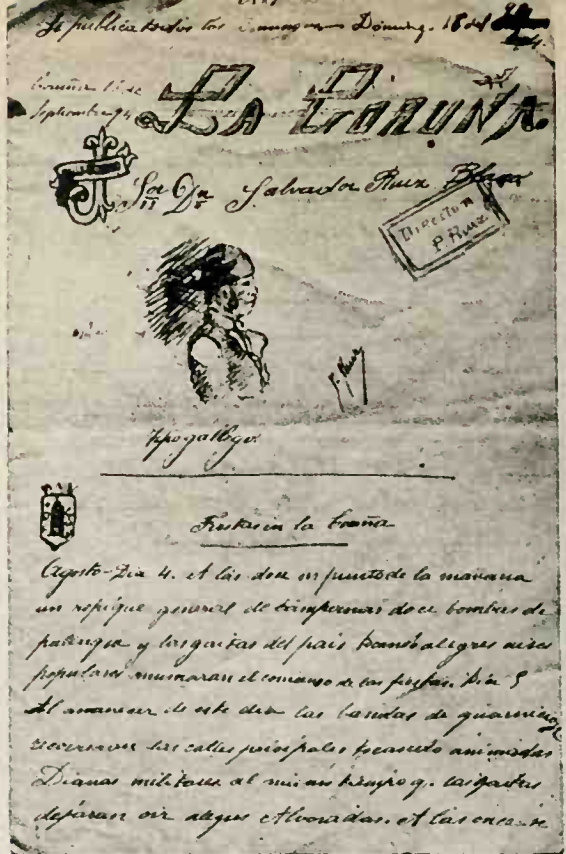 Se publica todos los Domingos Domingo 16 del
Coruña 16 de
Septiembre 94
La Coruña
Sor Dn Salvador Ruiz Blasco
Director
P. Ruiz
P. Ruiz
Tipo gallego
Fiestas en la Coruña
Agosto-Dia 4. A las doce en punto de la mañana
un repique general de campanas doce bombas de
palenque y las gaitas del pais tocando alegres aires
populares anunciaran el comienzo de las fiestas. Dia 5
Al amanecer de este dia las bandas de guarnicion
recorreran las calles principales tocando animadas
Dianas militares al mismo tiempo q. las gaitas
dejaran oir alegres Alvoradas. A las once se